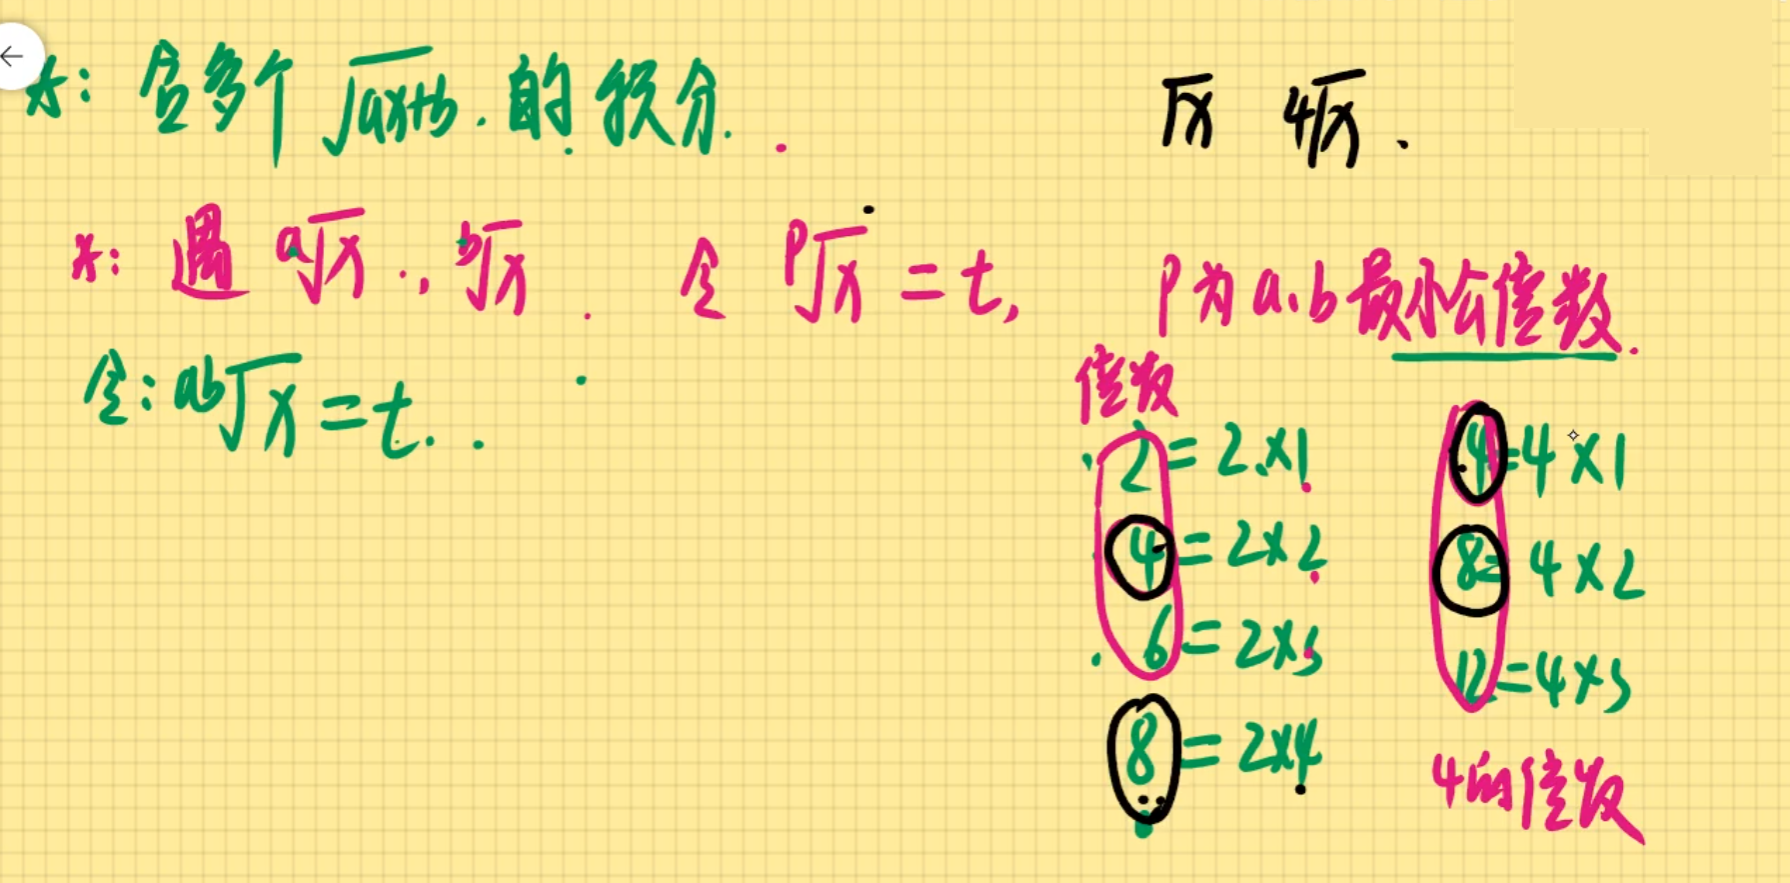 *: 含多个 √ax+b 的积分.
√x ⁴√x.
*: 遇 ᵃ√x, ᵇ√x. 令 ᵖ√x = t, p为a.b最小公倍数.
令: ᵃᵇ√x = t.
倍数
2 = 2×1
4 = 2×2
6 = 2×3
8 = 2×4
4 = 4×1
8 = 4×2
12 = 4×3
4的倍数